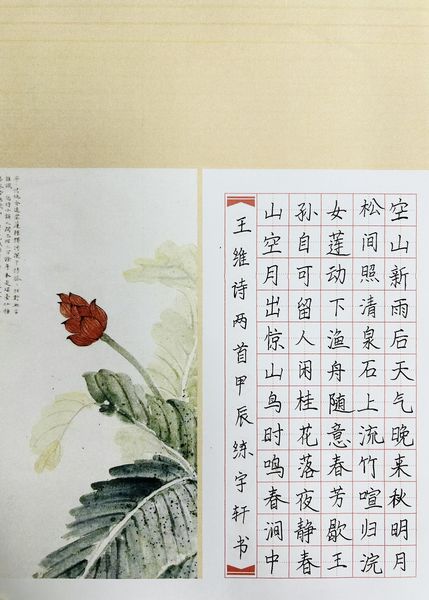 空山新雨后天气晚来秋明月
松间照清泉石上流竹喧归浣
女莲动下渔舟随意春芳歇王
孙自可留人闲桂花落夜静春
山空月出惊山鸟时鸣春涧中
王维诗两首甲辰练宇轩书